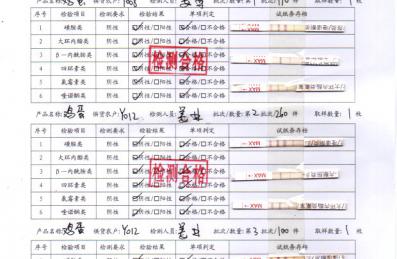 序号 检验项目 检测要求 检验结果 单项判定 试纸条存档
1 磺胺类 阴性 ☑阴性/☐阳性 ☑合格/☐不合格
2 大环内酯类 阴性 ☑阴性/☐阳性 ☑合格/☐不合格
3 β－内酰胺类 阴性 ☑阴性/☐阳性 ☑合格/☐不合格
4 四环素类 阴性 ☑阴性/☐阳性 ☑合格/☐不合格
5 氨霉素类 阴性 ☑阴性/☐阳性 ☑合格/☐不合格
6 喹诺酮类 阴性 ☑阴性/☐阳性 ☑合格/☐不合格
检测合格
产品名称: 鸡蛋 供货农户: Y012 检测人员: 批次/数量: 第 2 批次/ 260 件 取样数量: 1 枚
序号 检验项目 检测要求 检验结果 单项判定 试纸条存档
1 磺胺类 阴性 ☑阴性/☐阳性 ☑合格/☐不合格
2 大环内酯类 阴性 ☑阴性/☐阳性 ☑合格/☐不合格
3 β－内酰胺类 阴性 ☑阴性/☐阳性 ☑合格/☐不合格
4 四环素类 阴性 ☑阴性/☐阳性 ☑合格/☐不合格
5 氨霉素类 阴性 ☑阴性/☐阳性 ☑合格/☐不合格
6 喹诺酮类 阴性 ☑阴性/☐阳性 ☑合格/☐不合格
检测合格
产品名称: 鸡蛋 供货农户: Y012 检测人员: 批次/数量: 第 3 批次/ 100 件 取样数量: 1 枚
序号 检验项目 检测要求 检验结果 单项判定 试纸条存档